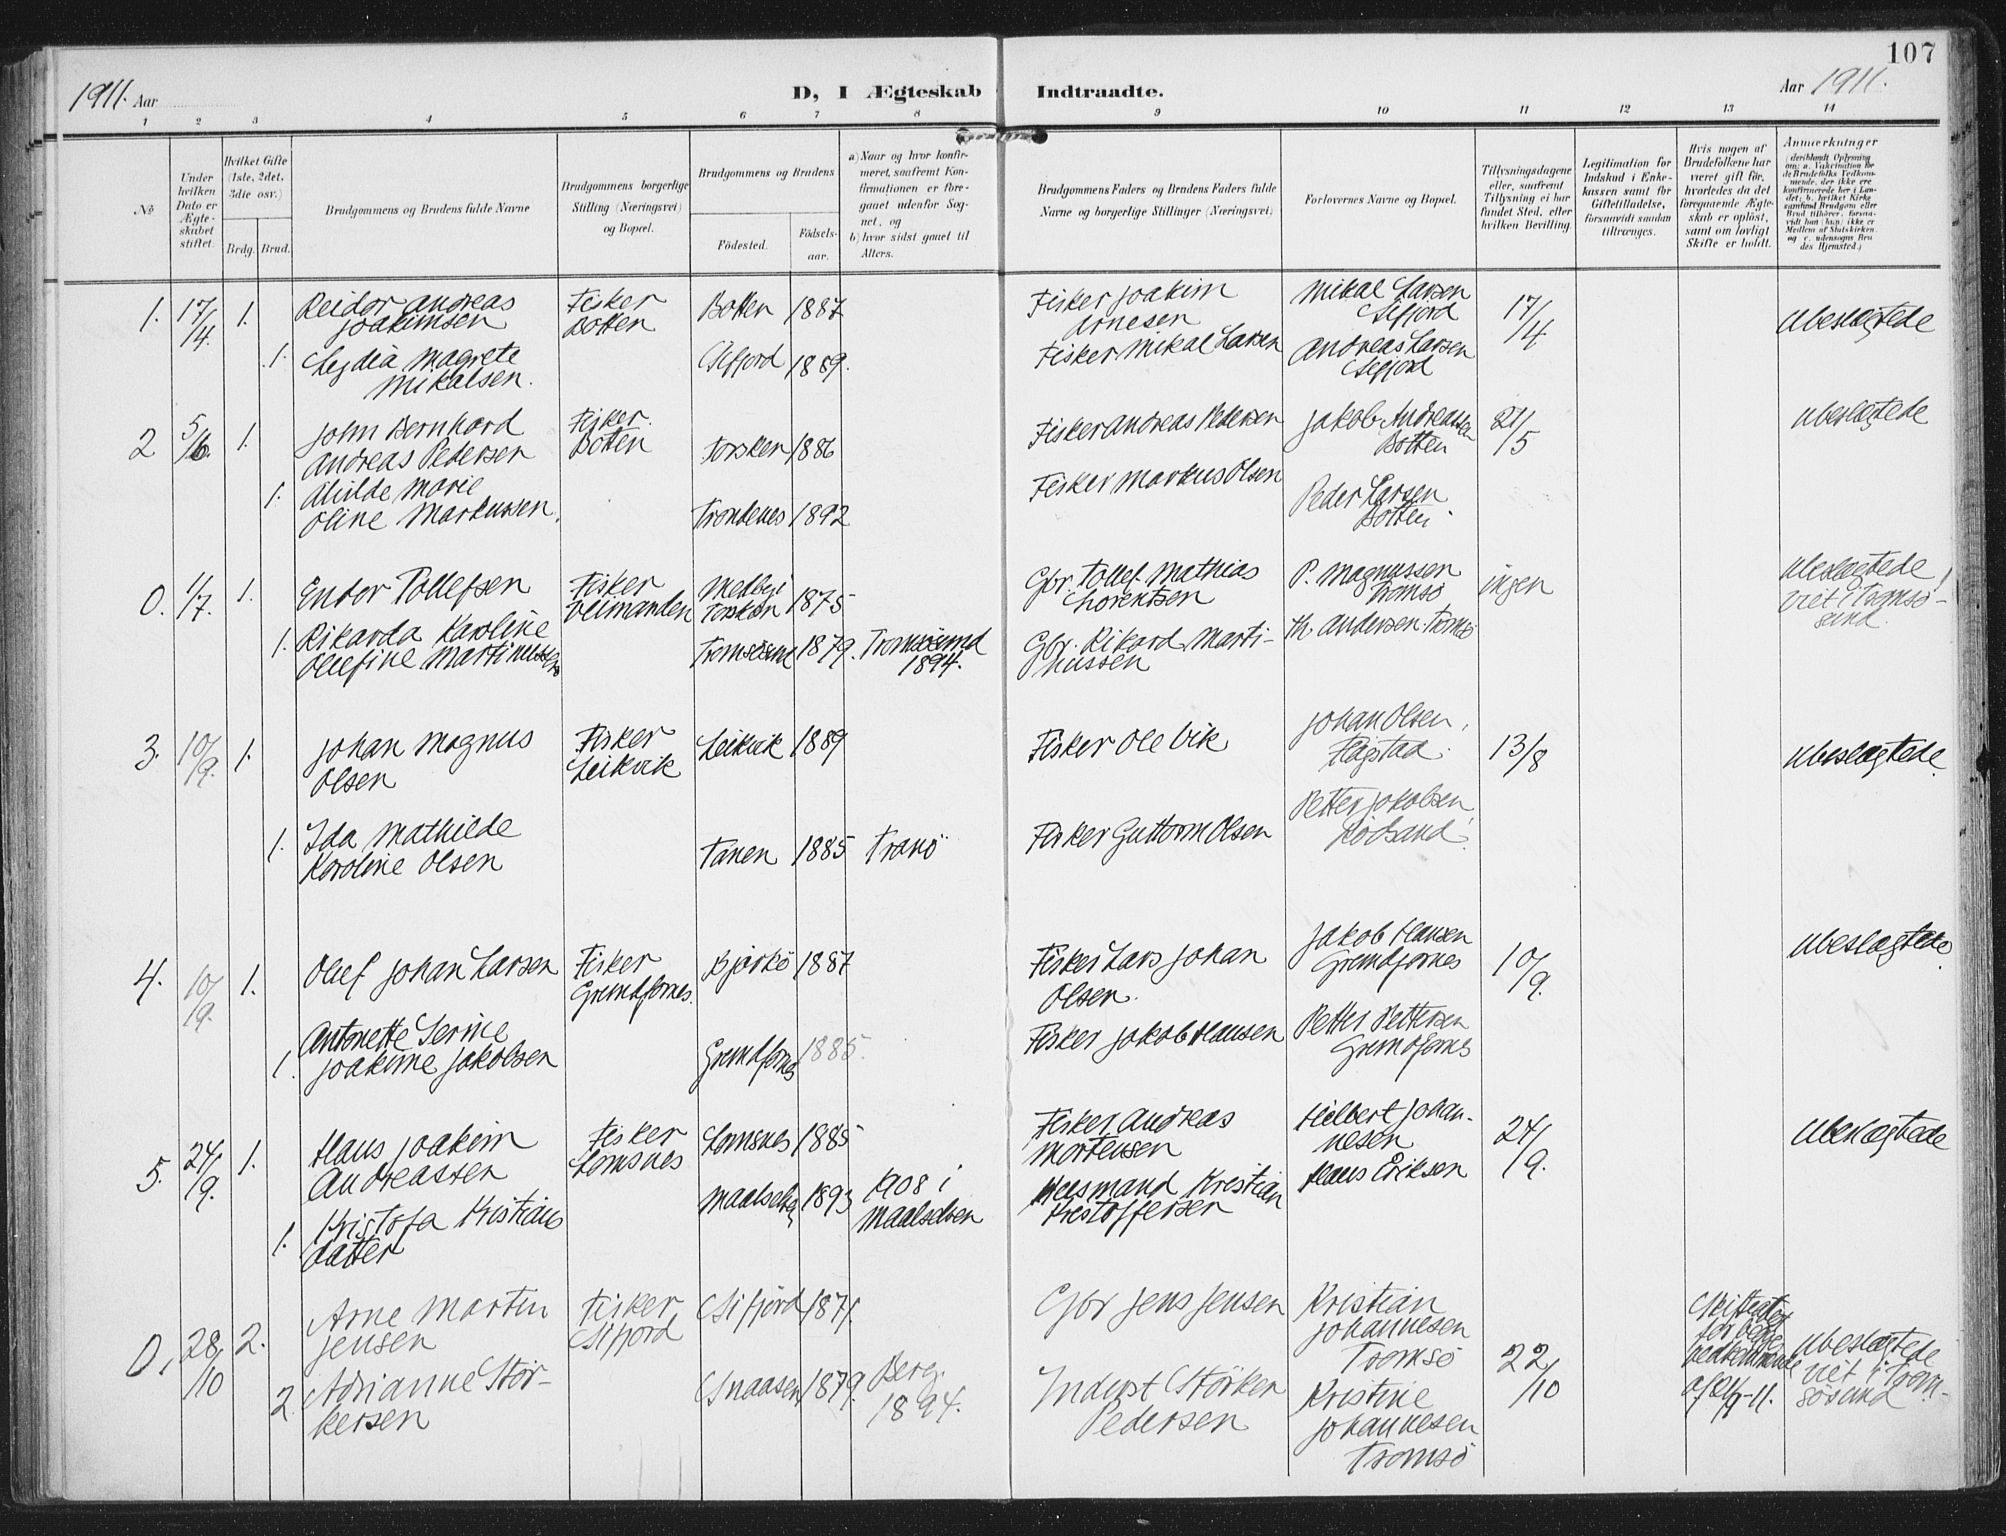 107
1911. Aar
D, I Ægteskab Indtraadte.
Aar 1911.
1 2 3 4 5 6 7 8 9 10 11 12 13 14
No
Under hvilken Dato er Ægte-skabet stiftet.
Hvilket Gifte (1ste, 2det, 3die osv.)
Brdg. Brud.
Brudgommens og Brudens fulde Navne
Brudgommens borgerlige Stilling (Næringsvei) og Bopæl.
Brudgommens og Brudens
Fødested.
Fødsels-aar.
a) Naar og hvor konfir-meret, saafremt Kon-firmationen er fore-gaaet udenfor Sog-net, og
b) hvor sidst gaaet til Alters.
Brudgommens Faders og Brudens Faders fulde Navne og borgerlige Stillinger (Næringsvei)
Forlovernes Navne og Bopæl.
Tillysningsdagene eller, saafremt Tillysning ei har fundet Sted, efter hvilken Bevilling.
Legitimation for Indskud i Enke-kassen samt for Giftetilladelse, forsaavidt saadan tiltrænges.
Hvis nogen af Brudefolkene har været gift før, hvorledes da det foregaaende Ægte-skab er opløst, samt om lovligt Skifte er holdt.
Anmerkninger
(deriblandt Oplysning om: a. Vakcination for de Brudefolks Vedkom-mende, der ikke ere konfirmerede her i Lan-det; b. hvilket Kirke-samfund Brudgom eller Brud tilhører, forsaa-vidt han (hun) ikke er Medlem af Statskirken, og c. udensogns Bru-des Hjemsted.)
1. 17/4. 1. Reidar Andreas Joakimsen
Fisker Botten
Botten 1887
Fisker Joakim Arnesen
Mikal Larsen Sifjord
17/4
Ubeslægtede
1. Lydia Magrete Mikalsen.
Sifjord 1889.
Fisker Mikal Larsen
Andreas Larsen Sifjord
2 5/6. 1. John Bernhard Andreas Pedersen
Fisker. Botten
Torsken 1886
Fisker Andreas Pedersen
Jakob Andreassen Botten
21/5
Ubeslægtede
1. Alvilde Marie Oline Markussen.
Trondenes 1892
Fisker Markus Olsen
Peder Larsen Botten
0. 1/7. 1. Endor Tollefsen
Fisker
Medby i Torsken 1875
Gbr. Tollef Mathias Lorentsen
P. Magnussen Tromsø
ingen
Ubeslægtede!
Viet i Tromsø-sund.
1. Rikarda Karoline Olefine Martinussen
Tromsøsund 1879.
Tromsøsund 1894.
Gbr. Rikard Marti-nussen
Th. Andersen Tromsø
3. 10/9. 1. Johan Magnus Olsen
Fisker Leikvik
Leikvik 1889
Fisker Ole Vik
Johan Olsen, Flagstad.
13/8
Ubeslægtede.
1. Ida Mathilde Karoline Olsen
Tanen 1885
Tranö
Fisker Guttorm Olsen
Petter Jakobsen, Rödsand.
4. 10/9. 1. Oluf Johan Larsen
Fisker Grundfarnes.
Bjarkö 1887
Fisker Lars Johan Olsen.
Jakob Hansen Grundfarnes
10/9.
Ubeslægtede.
1. Antonette Serine Joakime Jakobsen
Grundfarnes 1885.
Fisker Jakob Hansen
Petter Pettersen Grundfarnes
5. 24/9. 1. Hans Joakim Andreassen
Fisker Lomsnes
Lomsnes 1885
Fisker Andreas Mortensen
Hilbert Johan-nesen
24/9.
Ubeslægtede
1. Kristofa Kristians datter
Maalselv 1893
1908 i Maalselven
Huusmand Kristian Kristoffersen
Hans Eriksen
0. 28/10 2. Arne Martin Jensen
Fisker, Sifjord
Sifjord 1871.
Gbr Jens Jensen
Kristian Johannesen Tromsö
22/10
Skifteattest for begge vedkommende af
Ubeslægtede viet i Trom-søsund.
2. Adrianne Stör-kersen
Snaasen 1879.
Berg. 1894.
Inderst Störker Pedersen
Kristine Johannesen Tromsö